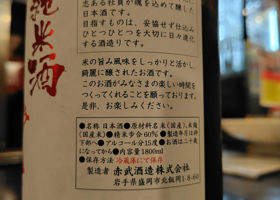 純米酒
志ある社員が魂を込めて醸した
日本酒です。
目指すものは、妥協せず仕込み
ひとつひとつを大切に日々進化
する酒造りです。
米の旨み風味をしっかりと活かし
綺麗に醸されたお酒です。
このお酒がみなさまの楽しい時間を
つくってくれることを願っております。
是非、お楽しみください。
●名称 日本酒●原材料名 米(国産)、米麹
(国産)●精米歩合60%●製造年月は枠
下部へ●アルコール分15度●お酒は二十歳
になってから●内容量1800ml
●保存方法 冷蔵庫にて保存
製造者 赤武酒造株式会社
岩手県盛岡市北飯岡1-8-60